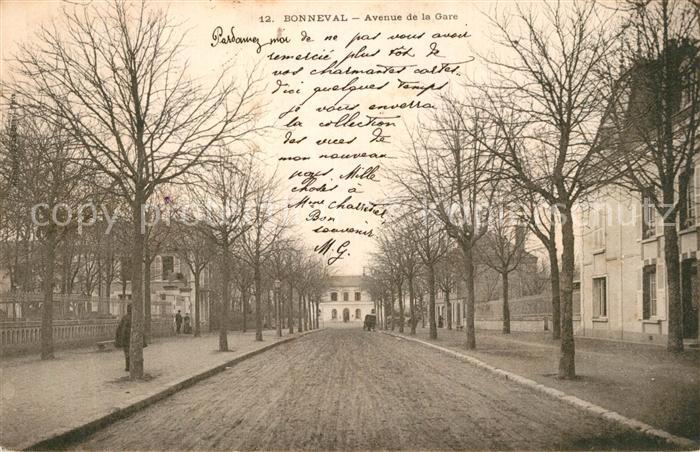 12. BONNEVAL – Avenue de la Gare
Pardonnez moi de ne pas vous avoir
remercié plus tôt de
vos charmantes cartes.
d'ici quelques temps
je vous enverrai
la collection
des vues de
mon nouveau
pays. Mille
choses à
Mme
Bon
souvenir
M. G.
copyright
kp-schutz
copyright
kp-schutz